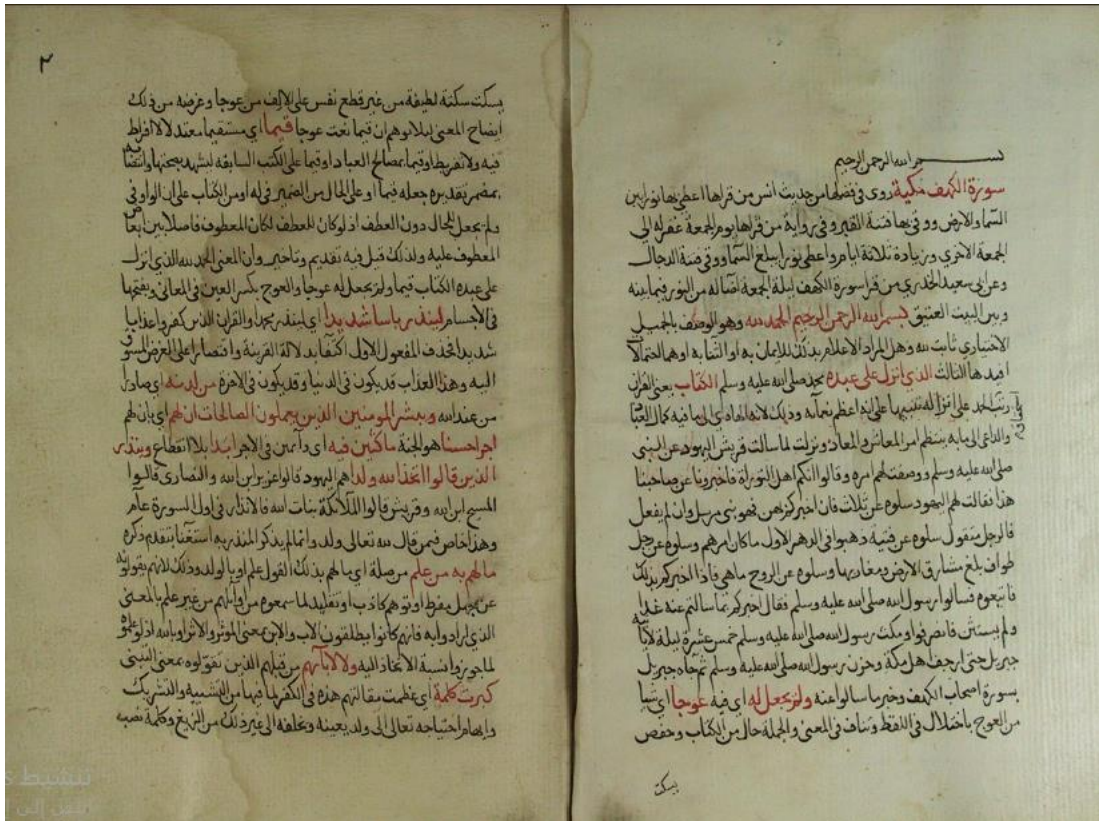 بسم الله الرحمن الرحيم
سورة الكهف مكية روى في فضلها من حديث انس من قراها اعطى بها نورا بين
السماء والارض ووقى بها فتنة القبر وفي رواية من قراها يوم الجمعة غفر له الى
الجمعة الاخرى وزيادة ثلاثة ايام واعطى نورا يبلغ السما ووقى فتنة الدجال
وعن ابى سعيد الخدري من قرا سورة الكهف ليلة الجمعة اضا له من النور فيما بينه
وبين البيت العتيق بسم الله الرحمن الرحيم الحمد لله وهو الوصف بالجميل
الاختياري ثابت لله وهل المراد الاعلام بذلك للايمان به او الثنا به او هما احتمالات
افيدها الثالث الذي انزل على عبده محمد صلى الله عليه وسلم الكتاب يعنى القران
رتب الحمد على انزاله تنبيها على انه اعظم نعمائه وذلك لانه الهادي الى ما فيه كمال العباد
والداعى الى ما به ينتظم امر المعاش والمعاد ونزلت لما سالت قريش اليهود عن النبى
صلى الله عليه وسلم ووصفت لهم امره وقالوا انكم اهل التوراة فاخبرونا عن صاحبنا
هذا فقالت لهم اليهود سلوه عن ثلاث فان اخبركم بهن فهو نبى مرسل وان لم يفعل
فالرجل متقول سلوه عن فتية ذهبوا فى الدهر الاول ما كان امرهم وسلوه عن رجل
طواف بلغ مشارق الارض ومغاربها وسلوه عن الروح ما هي فاذا اخبركم بذلك
فاتبعوه فسالوا رسول الله صلى الله عليه وسلم فقال اخبركم بما سالتم عنه غدا
ولم يستثن فانصرفوا ومكث رسول الله صلى الله عليه وسلم خمس عشرة ليلة لا ياتيه
جبريل حتى ارجف اهل مكة وحزن رسول الله صلى الله عليه وسلم ثم جاه جبريل
بسورة اصحاب الكهف وخبر ما سالوا عنه ولم يجعل له اي فيه عوجا اي شيا
من العوج باختلال في اللفظ وتناف فى المعنى والجملة حال من الكتاب وحفص
يسكت
٢
يسكت سكتة لطيفة من غير قطع نفس على الالف من عوجا وغرضه من ذلك
ايضاح المعنى ليلا يتوهم ان قيما نعت عوجا قيما اي مستقيما معتدلا لا افراط
فيه ولا تفريط او قيما بمصالح العباد او قيما على الكتب السابقه ليشهد بصحتها وانتصابه
بمضمر تقديره جعله قيما او على الحال من الضمير فى له او من الكتاب على ان الواو فى
ولم يجعل للحال دون العطف اذ لو كان للعطف لكان المعطوف فاصلا بين ابعاض
المعطوف عليه ولذلك قيل فيه تقديم وتاخير وان المعنى الحمد لله الذي انزل
على عبده الكتاب قيما ولم يجعل له عوجا والعوج بكسر العين فى المعانى وبفتحها
فى الاجسام لينذر باسا شديدا اي لينذر محمدا والقران الذين كفروا عذابا
شديدا فحذف المفعول الاول اكتفا بدلالة القرينة واقتصارا على الغرض المسوق
اليه وهذا العذاب قد يكون فى الدنيا وقد يكون فى الاخرة من لدنه اي صادرا
من عند الله ويبشر المومنين الذين يعملون الصالحات ان لهم اي بان لهم
اجرا حسنا هو الجنة ماكثين فيه اى دايمين فى الاجر ابدا بلا انقطاع وينذر
الذين قالوا اتخذ الله ولدا هم اليهود قالوا عزير ابن الله والنصارى قالوا
المسيح ابن الله وقريش قالوا الملائكة بنات الله فالانذار فى اول السورة عام
وهذا خاص فيمن قال لله تعالى ولد وانما لم يذكر المنذر به استغنا بتقدم ذكره
ما لهم به من علم من صلة اي ما لهم بذلك القول علم او بالولد وذلك لانهم يقولونه
عن جهل مفرط او توهم كاذب او تقليد لما سمعوه من اوايلهم من غير علم بالمعنى
الذي ارادوا به فانهم كانوا يطلقون الاب والابن بمعنى الموثر والاثر او بالله اذ لو علموه
لما جوزوا نسبة الاتخاذ اليه ولا لابائهم من قبلهم الذين تقولوه بمعنى التبنى
كبرت كلمة اي عظمت مقالتهم هذه فى الكفر لما فيها من التشبيه والتشريك
وايهام احتياجه تعالى الى ولد يعينه ويخلفه الى غير ذلك من الزيغ وكلمة نصب